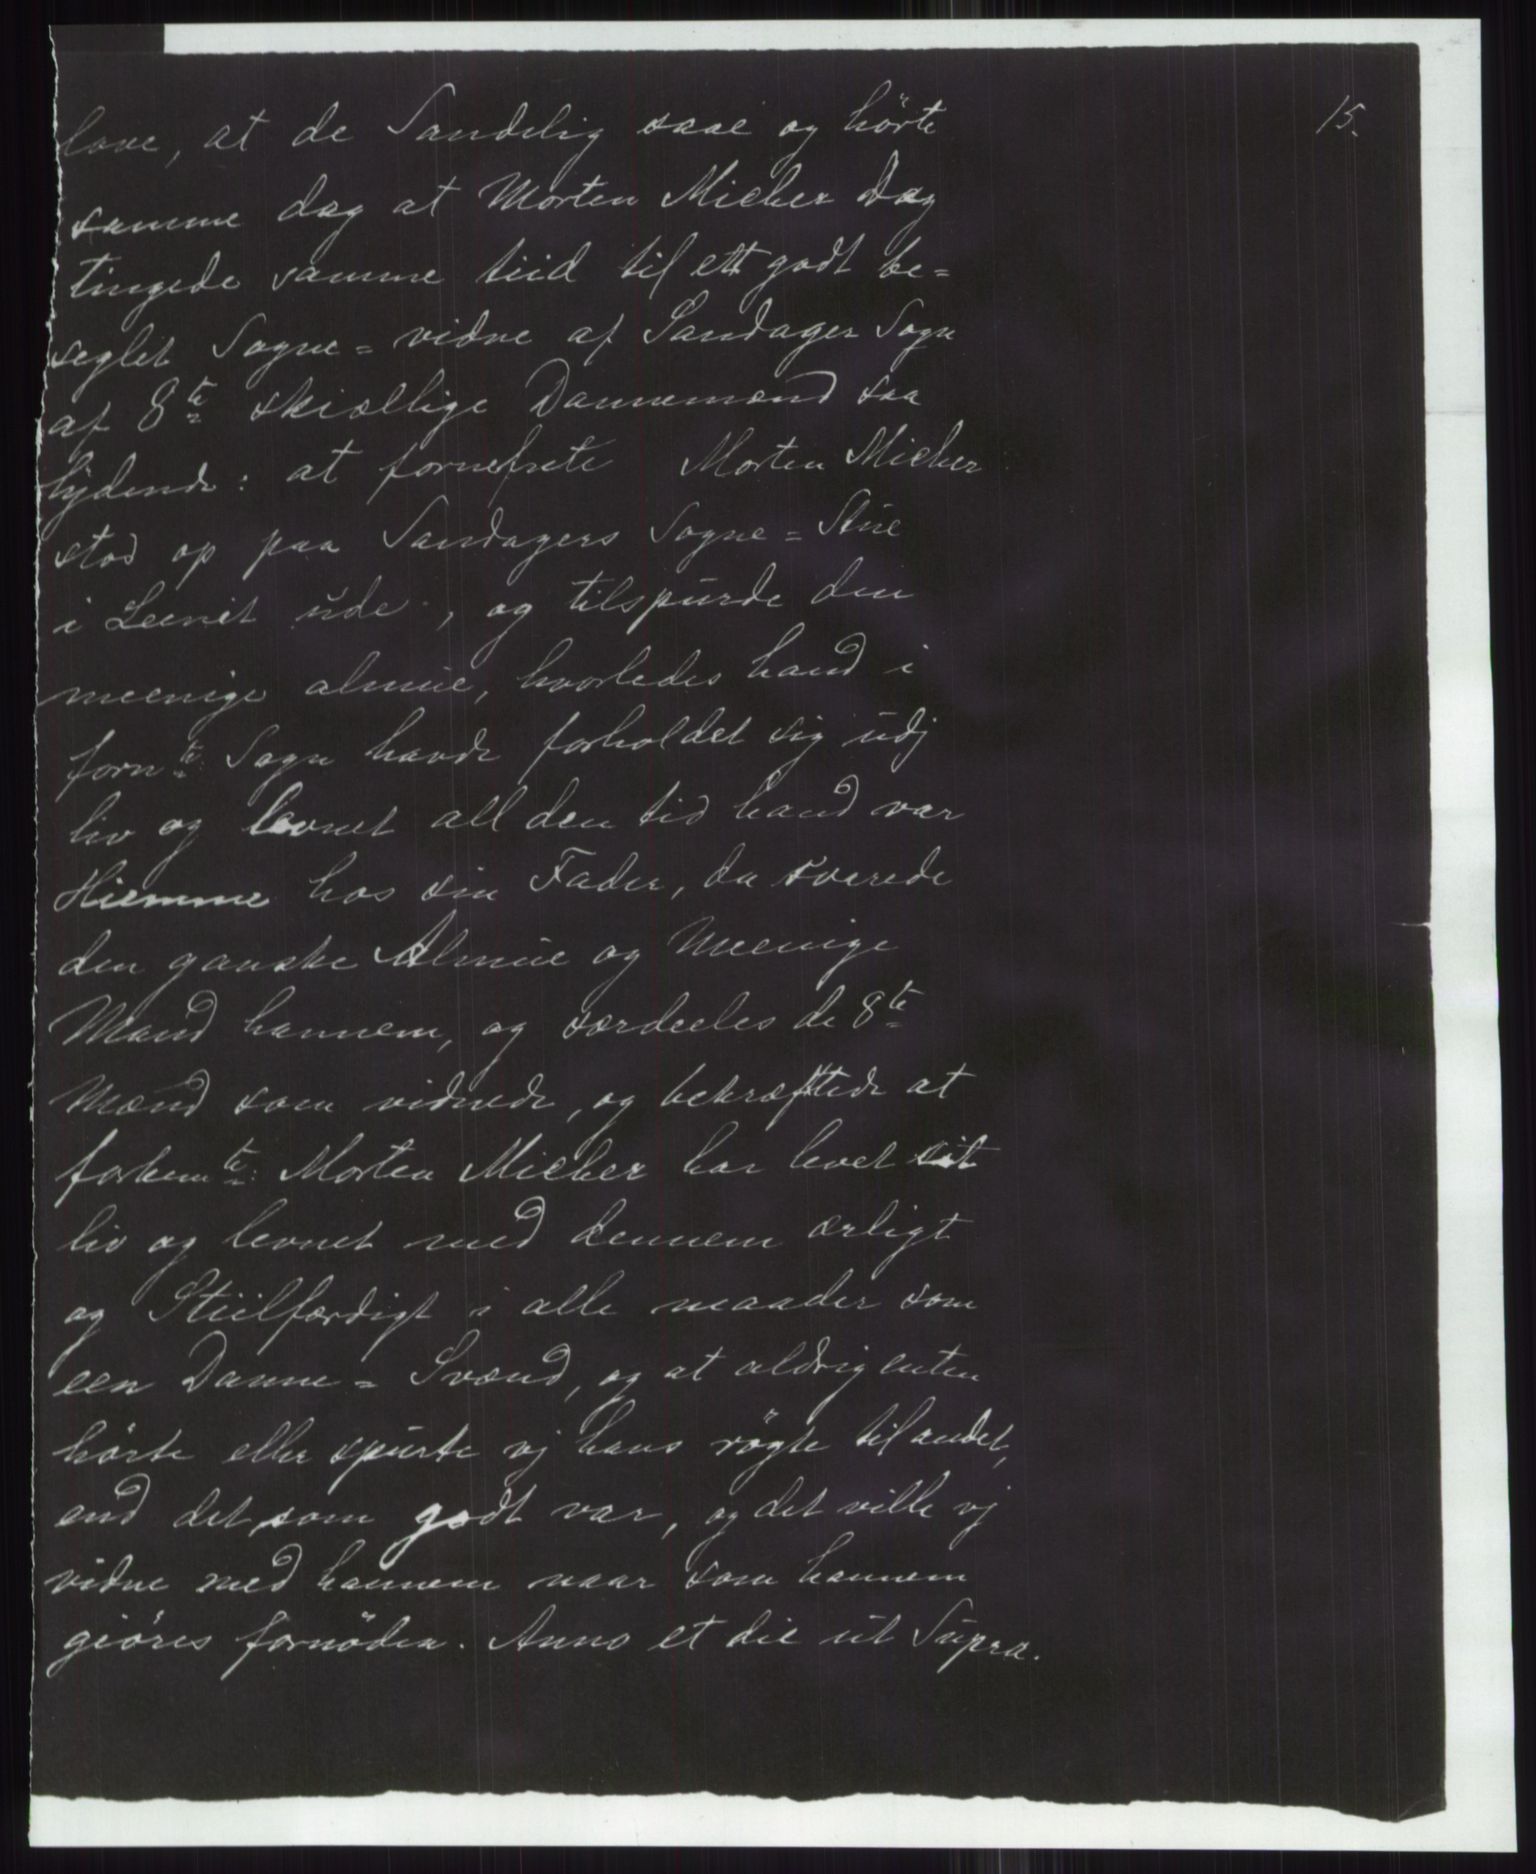 15.
love, at de Sandelig saae og hörte
samme dag at Morten Micher Dag
tingede samme tiid til ett godt be=
seglet Sogne=vidne af Sandager Sogn
af 8te skiællige Dannemænd saa
lydende: at fornefnte Morten Micher
stod op paa Sandagers Sogne=Stue
i Leenet ude, og tilspurde den
meenige almue, hvorledes hand i
fornte Sogn havde forholdet sig udj
liv og levnet all den tid hand var
Hiemme hos sin Fader, da svarede
den ganske Almue og Meenige
Mand hannem, og særdeeles de 8te
Mænd som vidnede, og bekræftede at
forbemte Morten Micher har levet sit
liv og levnet med dennem ærligt
og Stiilfærdigt i alle maader som
een Danne=Svend, og at aldrig enten
hörte eller spurte vj hans rögte til andet,
end det som godt var, og det ville vj
vidne med hannem naar som hannem
giöres fornöden. Anno et die ut Supra.